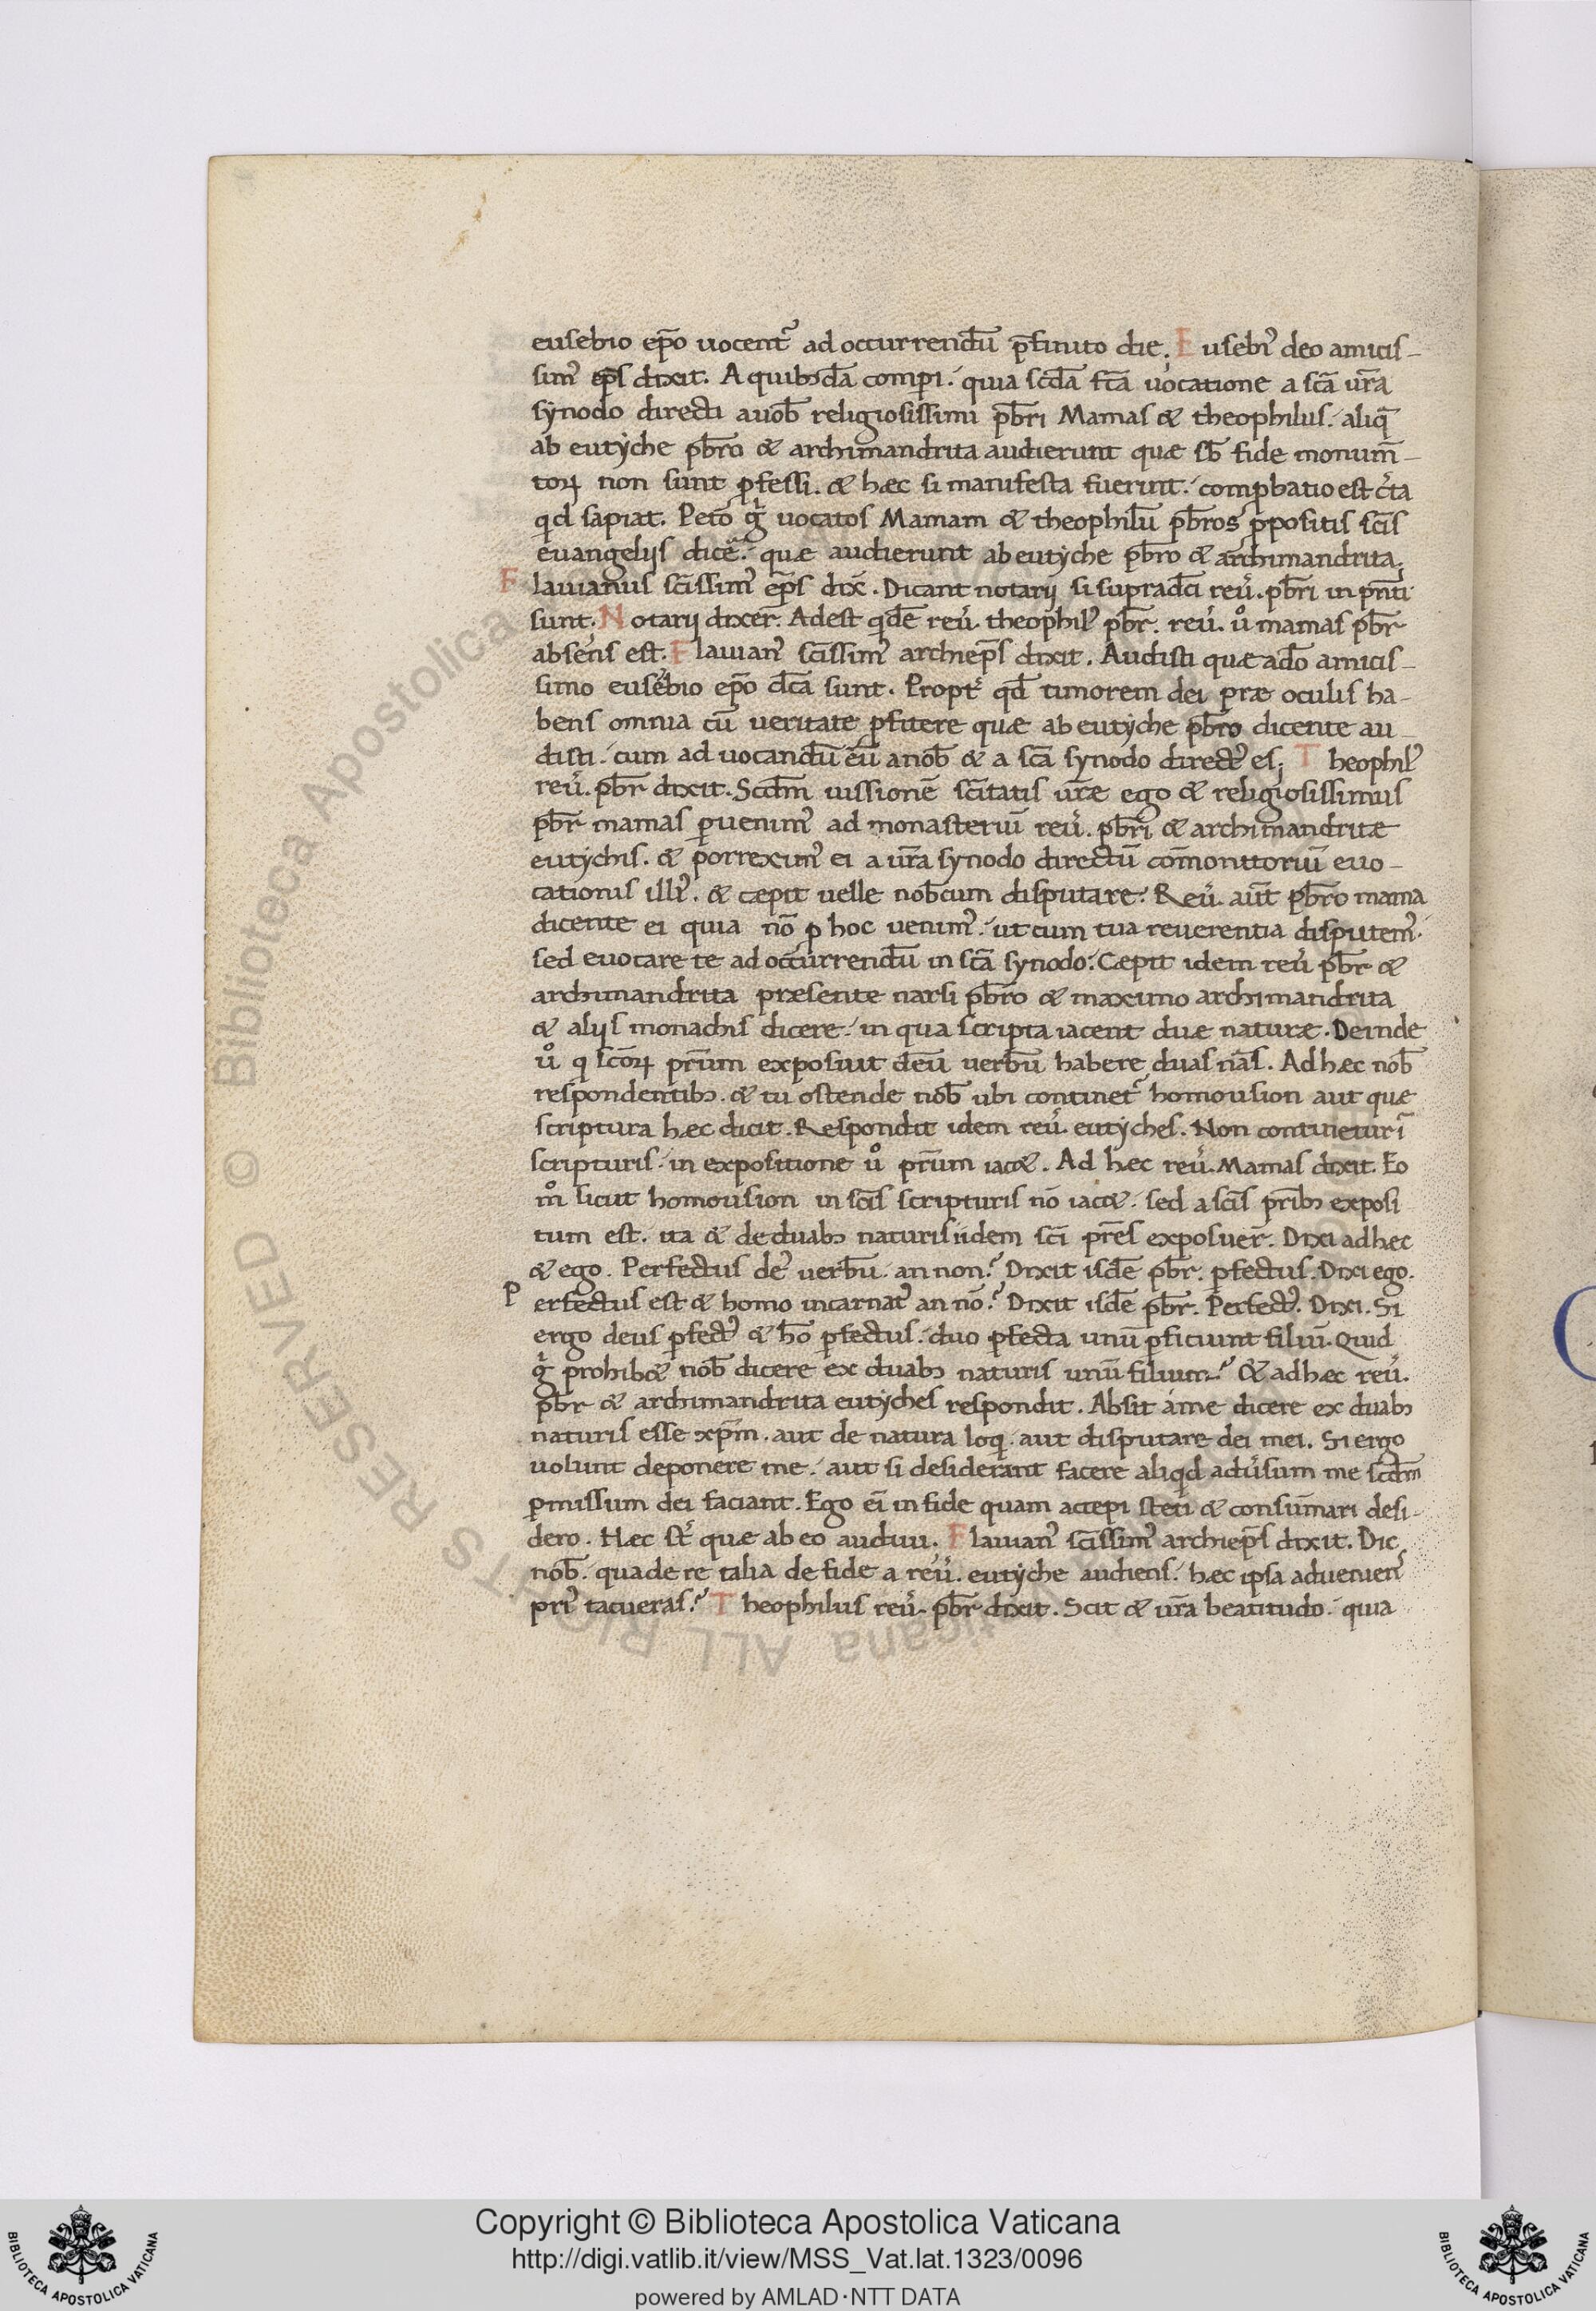 eusebio ep̄o uocent᷑ ad occurrendū p̄finito die. Eusebiꝰ deo amicis-
simꝰ ep̄s dixit. A quibꝫdā comperi. quia scd̄a fcā uocatione a scā ur̄a
synodo directi a uob̄ religiosissimi pb̄ri Mamas & theophilus. aliq̄
ab eutyche pb̄ro & archimandrita audierunt quæ sb̄ fide monum̄-
toꝝ non sunt ꝓfessi. & hæc si manifesta fuerint. comꝓbatio est c̓ta
qd sapiat. Peto g̊ uocatos Mamam & theophilū pb̄ros ꝓpositis scīs
euangelijs dicē. quæ audierunt ab eutyche pb̄ro & archimandrita.
Flauianus scīssimꝰ ep̄s dix̄. Dicant notarij si supradc̄i reu᷑. pb̄ri in pn̄ti
sunt. Notarij dixer̄. Adest qdē reu᷑. theophilꝰ pb̄r. reu᷑. ů mamas pb̄r
absens est. Flauianꝰ scīssimꝰ archiep̄s dixit. Audisti quæ a dō amicis-
simo eusebio ep̄o dc̄a sunt. Propt᷑ qd̄ timorem dei præ oculis ha-
bens omnia cū ueritate ꝓfitere quæ ab eutyche pb̄ro dicente au-
disti. cum ad uocandū eū a nob̄ & a scā synodo directꝰ es; Theophilꝰ
reu᷑. pb̄r dixit. Scd̄m iussionē scītatis ur̄æ ego & religiosissimus
pb̄r mamas ꝑuenimꝰ ad monasteriū reu᷑. pb̄ri & archimandritæ
eutychis. & porreximꝰ ei a ur̄a synodo directū cōmonitoriū euo-
cationis illiꝰ. & cæpit uelle nob̄cum disputare. Reu᷑. aut̄ pb̄ro mama
dicente ei quia nō ꝓ hoc uenimꝰ. ut cum tua reuerentia disputemꝰ.
sed euocare te ad occurrendū in scā synodo. Cæpit idem reu᷑ pb̄r &
archimandrita præsente narsi pb̄ro & maximo archimandrita
& alijs monachis dicere. in qua scripta iacent duæ naturæ. Deinde
ů q scōꝝ pr̄um exposuit deū uerbū habere duas nās. Ad hæc nob̄
respondentibꝫ. & tu ostende nob̄ ubi continet᷑ homousion aut quæ
scriptura hæc dicit. Respondit idem reu᷑. eutyches. Non continetur ī
scripturis. in expositione ů pr̄um iac&. Ad hec reu᷑. Mamas dixit. Eo
m̊ sicut homousion in scīs scripturis nō iac&. sed a scīs pr̄ibꝫ exposi
tum est. ita & de duabꝫ naturis iidem scī pr̄es exposuer̄. Dixi ad hec
& ego. Perfectus deꝰ uerbū. an non? Dixit isdē pb̄r. ꝑfectus. Dixi ego.
Perfectus est & homo incarnatꝰ an nō? Dixit isdē pb̄r. Perfectꝰ. Dixi. Si
ergo deus ꝑfectꝰ & hō ꝑfectus. duo ꝑfecta unū ꝑficiunt filiū. Quid
g̊ prohib& nob̄ dicere ex duabꝫ naturis unū filium? & ad hæc reu᷑.
pb̄r & archimandrita eutyches respondit. Absit a me dicere ex duabꝫ
naturis esse xp̄m. aut de natura loqi. aut disputare dei mei. Si ergo
uolunt deponere me. aut si desiderant facere aliqd adu᷑sum me scd̄m
ꝑmissum dei faciant. Ego ei̅ in fide quam accepi steti & consūmari desi-
dero. Hæc st̄ quæ ab eo audiui. Flauianꝰ scīssimꝰ archiep̄s dixit. Dic
nob̄. qua de re talia de fide a reu᷑. eutyche audiens. hæc ipsa adueniens
priꝰ tacueras? Theophilus reu᷑. pb̄r dixit. Scit & ur̄a beatitudo. quia
Copyright © Biblioteca Apostolica Vaticana
http://digi.vatlib.it/view/MSS_Vat.lat.1323/0096
powered by AMLAD·NTT DATA